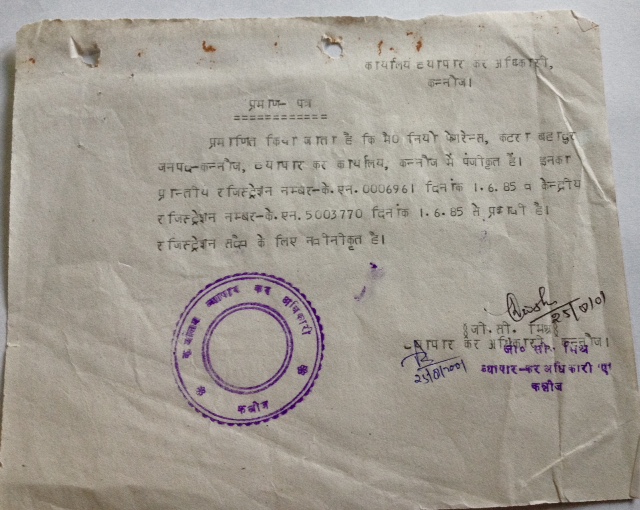 कार्यालय व्यापार कर अधिकारी,
कन्नौज।
प्रमाण- पत्र
प्रमाणित किया जाता है कि मै0 नियो फ्रेगरेन्स, कटरा बहादुर
जनपद-कन्नौज, व्यापार कर कार्यालय, कन्नौज में पंजीकृत है। इनका
प्रान्तीय रजिस्ट्रेशन नम्बर-के.एन.0006961 दिनांक 1.6.85 व केन्द्रीय
रजिस्ट्रेशन नम्बर-के.एन.5003770 दिनांक 1.6.85 से प्रभावी है।
रजिस्ट्रेशन सदैव के लिए नवीनीकृत है।
व्यापार कर अधिकारी
कन्नौज
25/8/01
जी. सी. मिश्र
व्यापार कर अधिकारी, कन्नौज।
25/8/2001
जी० सी० मिश्र
व्यापार-कर अधिकारी 'ए'
कन्नौज